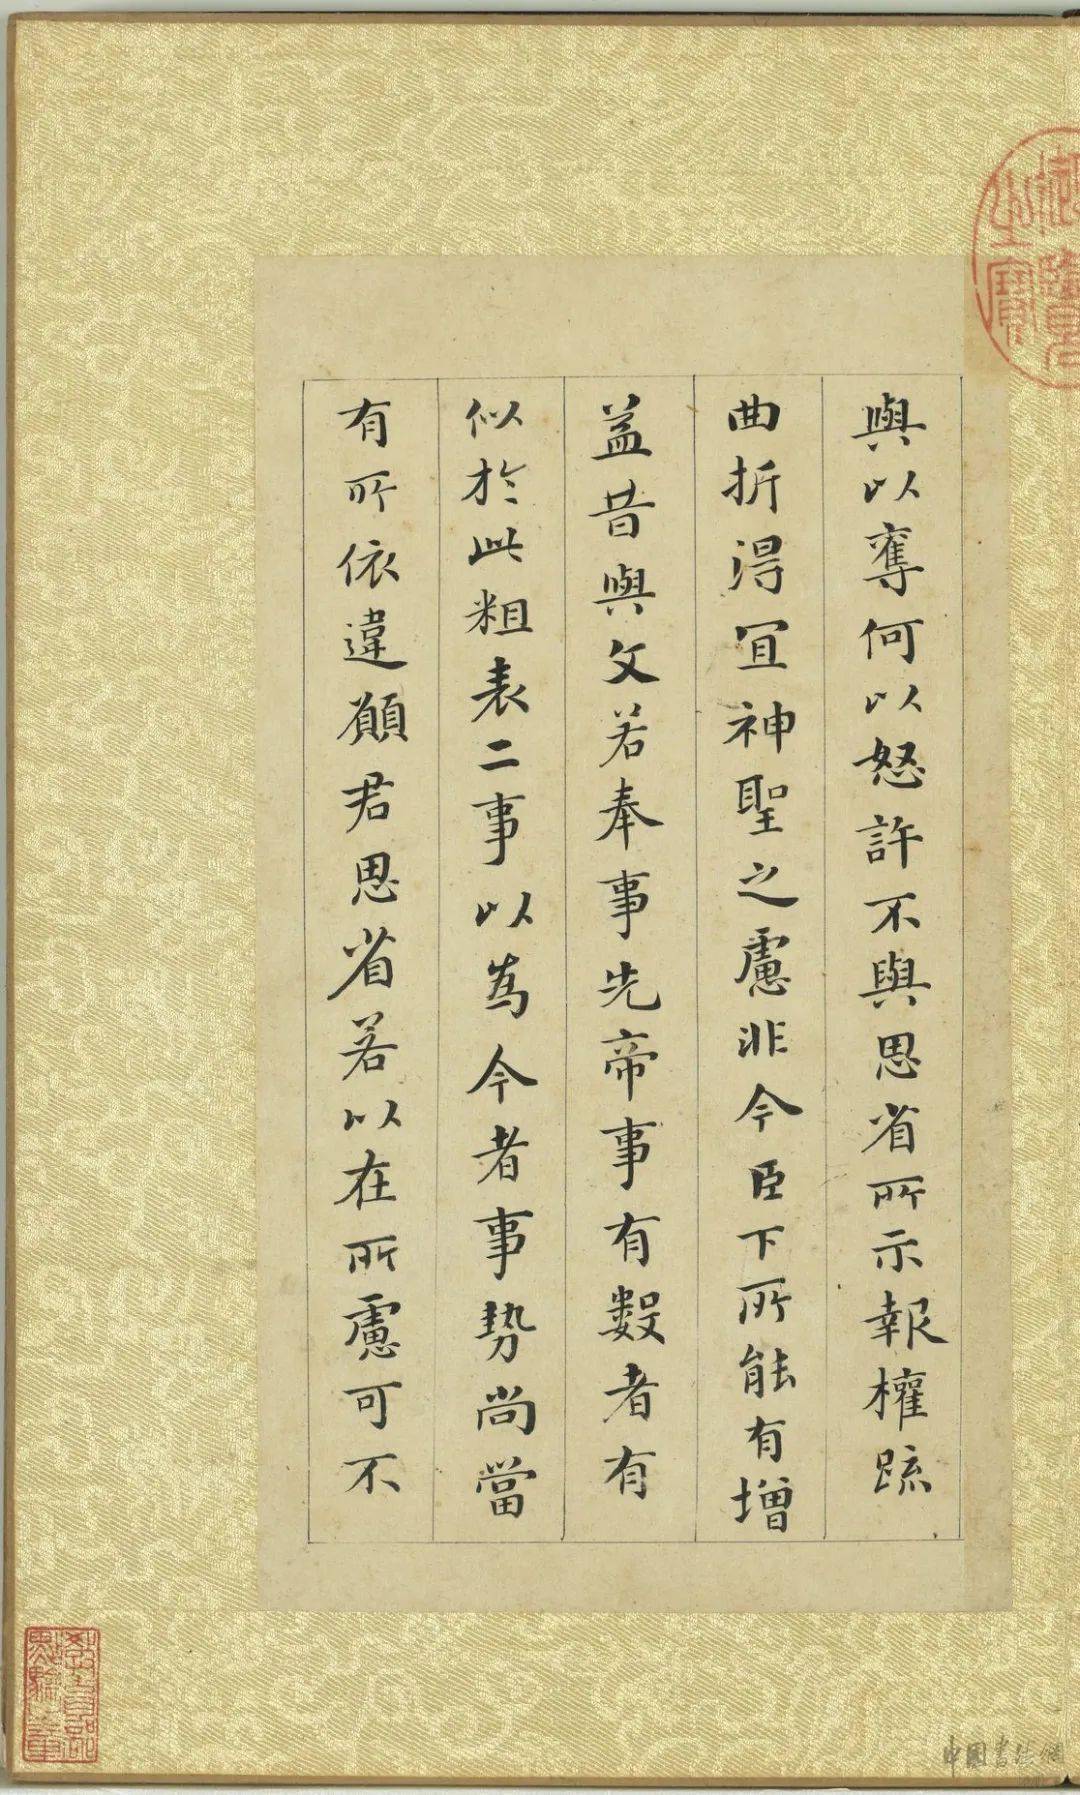 與以奪何以怒許不與思省所示報權疏
曲折得宜神聖之慮非今臣下所能有增
益昔與文若奉事先帝事有數者有
似於此粗表二事以為今者事勢尚當
有所依違願君思省若以在所慮可不
御覽之寶
中國書法網